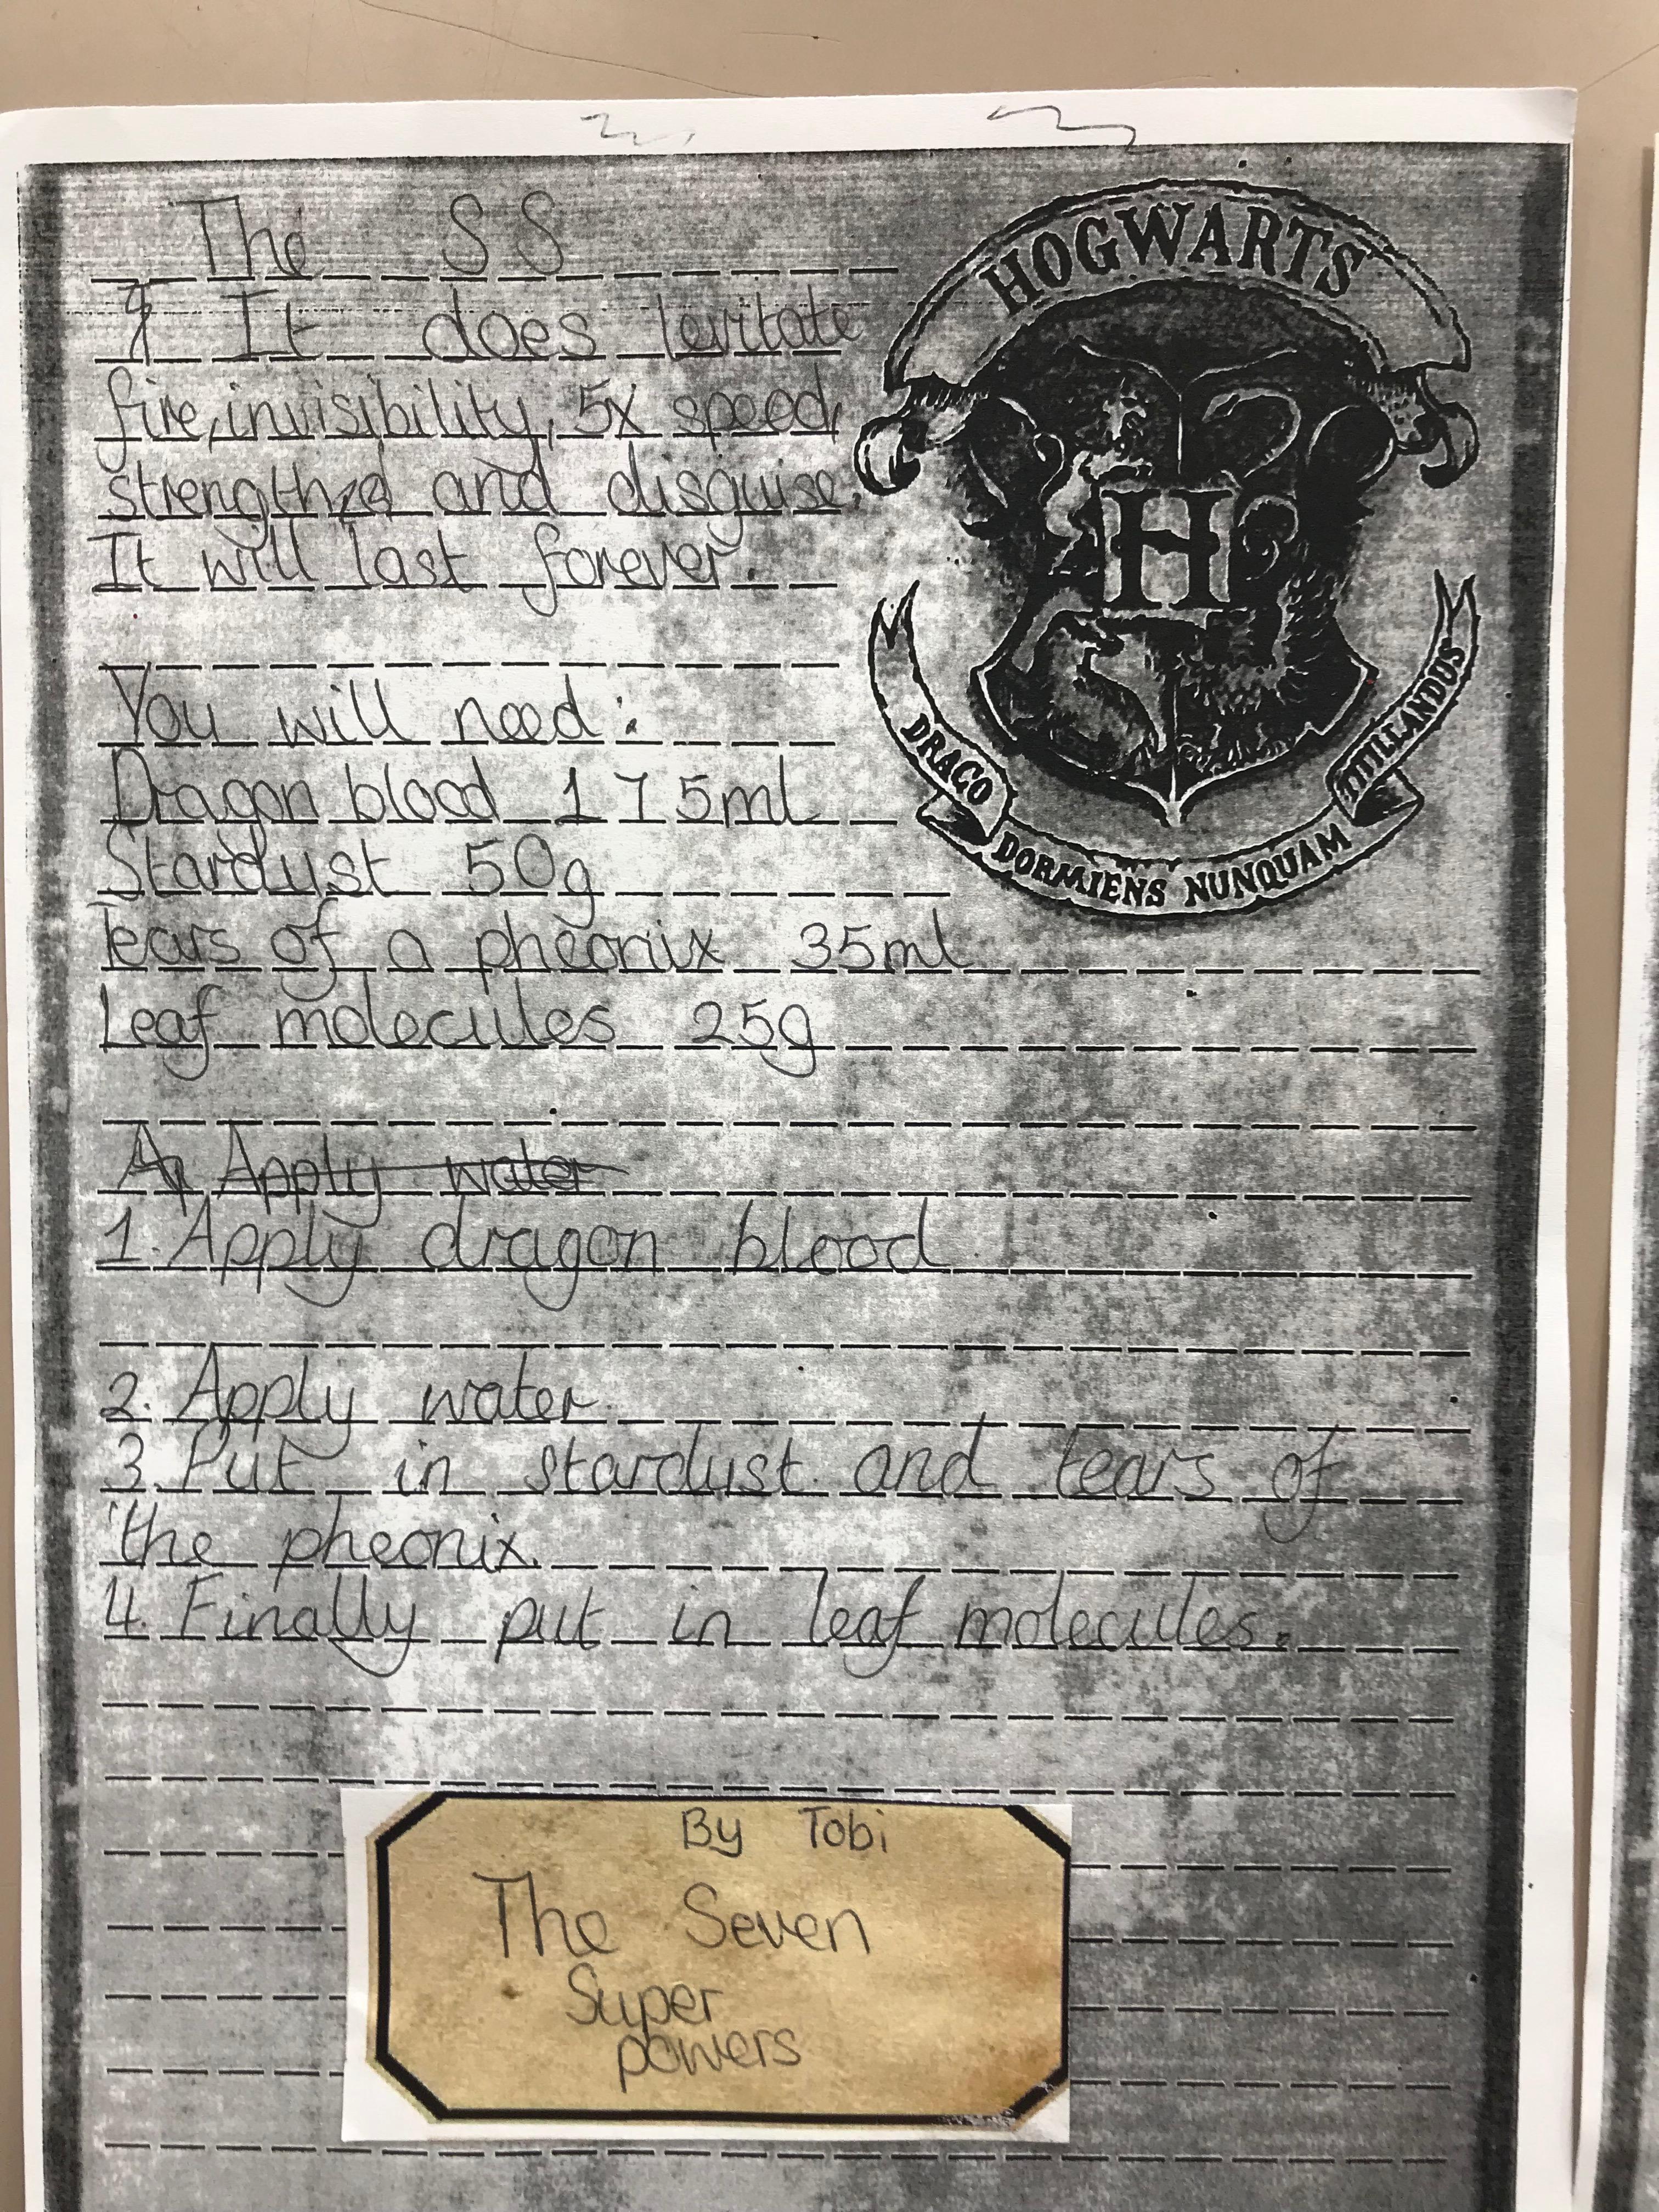 The SS
It does levitate
fire, invisibility, 5x speed,
strength and disguise.
It will last forever.
You will need:
Dragon blood 175ml
Stardust 50g
Tears of a pheonix 35ml
Leaf molecules 25g
Apply water
1. Apply dragon blood
2. Apply water
3. Put in stardust and tears of
the pheonix.
4. Finally put in leaf molecules.
HOGWARTS
H
DRACO DORMIENS NUNQUAM TITILLANDUS
By Tobi
The Seven
Super
powers